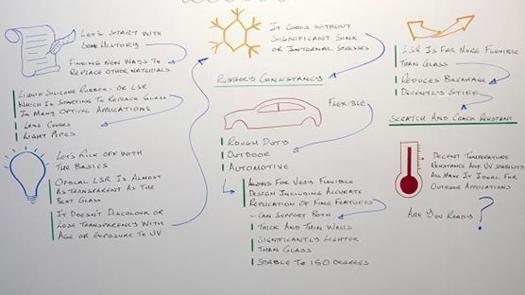 Let's Start With
Some History
Finding New Ways To
Replace Other Materials
Liquid Silicone Rubber - Or LSR
Which Is Something To Replace Glass
In Many Optical Applications
Lens Covers
Light Pipes
Let's Kick Off With
The Basics
Optical LSR Is Almost
As Transparent As The
Best Glass
It Doesn't Discolor Or
Lose Transparency With
Age Or Exposure To UV
It Cools Without
Significant Sink
Or Internal Stresses
Rubbery Consistancy
Flexible
Rough Duty
Outdoor
Automotive
Allows For Very Flexible
Design Including Accurate
Replication Of Fine Features
- Can Support Both
Thick And Thin Walls
Significantly Lighter
Than Glass
Stable To 150 Degrees
LSR Is Far More Flexible
Than Glass
Reduces Breakage
Decently Stiff
Scratch And Crack Resistant
Decent Temperature
Resistance And UV Stability
All Make It Ideal For
Outdoor Applications
Are You Ready
?